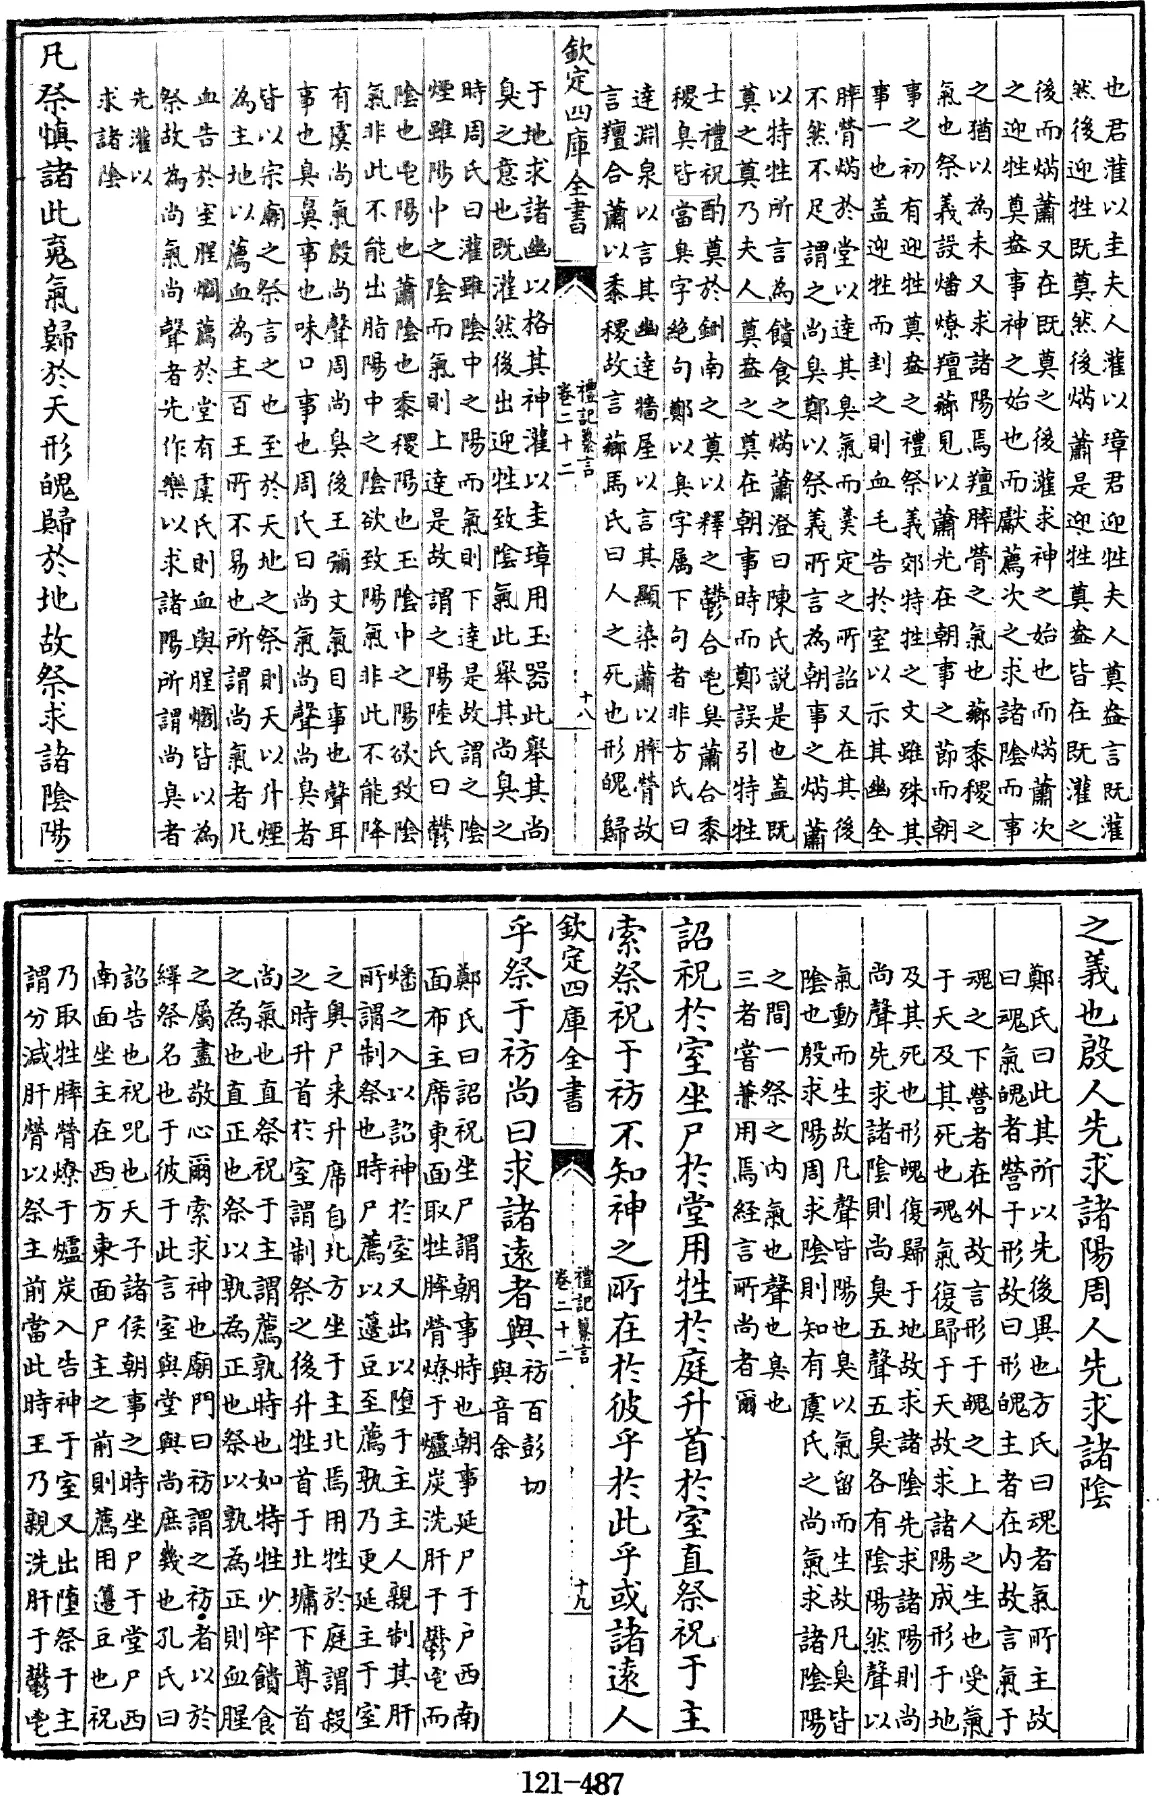 也君灌以圭夫人灌以璋君迎牲夫人奠盎言既灌
然後迎牲既奠然後焫蕭是迎牲奠盎皆在既灌之
後而焫蕭又在既奠之後灌求神之始也而焫蕭次
之迎牲奠盎事神之始也而獻薦次之求諸隂而事
之猶以為未又求諸陽焉羶膟膋之氣也薌黍稷之
氣也祭義設燔燎羶薌見以蕭光在朝事之節而朝
事之初有迎牲奠盎之禮祭義郊特牲之文雖殊其
事一也盖迎牲而刲之則血毛告於室以示其幽全
膟膋焫於堂以達其臭氣而羮定之所詔又在其後
不然不足謂之尚臭鄭以祭義所言為朝事之焫蕭
以特牲所言為饋食之焫蕭澄曰陳氏説是也盖既
奠之奠乃夫人奠盎之奠在朝事時而鄭誤引特牲
士禮祝酌奠於鉶南之奠以釋之鬱合鬯臭蕭合黍
稷臭皆當臭字絶句鄭以臭字属下句者非方氏曰
達淵泉以言其幽達牆屋以言其顯染蕭以膟膋故
言羶合蕭以黍稷故言薌馬氏曰人之死也形魄歸
欽定四庫全書
禮記纂言
卷二十二
十八
于地求諸幽以格其神灌以圭璋用玉器此舉其尚
臭之意也既灌然後出迎牲致隂氣此舉其尚臭之
時周氏曰灌雖隂中之陽而氣則下達是故謂之隂
煙雖陽中之隂而氣則上達是故謂之陽陸氏曰鬱
隂也鬯陽也蕭隂也黍稷陽也玉隂中之陽欲致隂
氣非此不能出脂陽中之隂欲致陽氣非此不能降
有虞尚氣殷尚聲周尚臭後王彌文氣目事也聲耳
事也臭鼻事也味口事也周氏曰尚氣尚聲尚臭者
皆以宗廟之祭言之也至於天地之祭則天以升煙
為主地以薦血為主百王所不易也所謂尚氣者凡
血告於室腥爓薦於堂有虞氏則血與腥爓皆以為
祭故為尚氣尚聲者先作樂以求諸陽所謂尚臭者
先灌以
求諸隂
凡祭慎諸此䰟氣歸於天形魄歸於地故祭求諸隂陽
之義也殷人先求諸陽周人先求諸隂
鄭氏曰此其所以先後異也方氏曰魂者氣所主故
曰魂氣魄者營于形故曰形魄主者在内故言氣于
魂之下營者在外故言形于魄之上人之生也受氣
于天及其死也魂氣復歸于天故求諸陽成形于地
及其死也形魄復歸于地故求諸隂先求諸陽則尚
尚聲先求諸隂則尚臭五聲五臭各有隂陽然聲以
氣動而生故凡聲皆陽也臭以氣留而生故凡臭皆
隂也殷求陽周求隂則知有虞氏之尚氣求諸隂陽
之間一祭之内氣也聲也臭也
三者嘗兼用焉經言所尚者爾
詔祝於室坐尸於堂用牲於庭升首於室直祭祝于主
索祭祝于祊不知神之所在於彼乎於此乎或諸遠人
欽定四庫全書
禮記纂言
卷二十二
十九
乎祭于祊尚曰求諸遠者與
祊百彭切
與音余
鄭氏曰詔祝坐尸謂朝事時也朝事延尸于户西南
面布主席東面取牲膟膋燎于爐炭洗肝于鬱鬯而
燔之入以詔神於室又出以墮于主主人親制其肝
所謂制祭也時尸薦以籩豆至薦孰乃更延主于室
之奥尸来升席自北方坐于主北焉用牲於庭謂殺
之時升首於室謂制祭之後升牲首于北墉下尊首
尚氣也直祭祝于主謂薦孰時也如特牲少牢饋食
之為也直正也祭以孰為正也祭以孰為正則血腥
之屬盡敬心爾索求神也廟門曰祊謂之祊者以於
繹祭名也于彼于此言室與堂與尚庶幾也孔氏曰
詔告也祝呪也天子諸侯朝事之時坐尸于堂尸西
南面坐主在西方東面尸主之前則薦用籩豆也祝
乃取牲膟膋燎于爐炭入告神于室又出墮祭于主
謂分減肝膋以祭主前當此時王乃親洗肝于鬱鬯
121-487